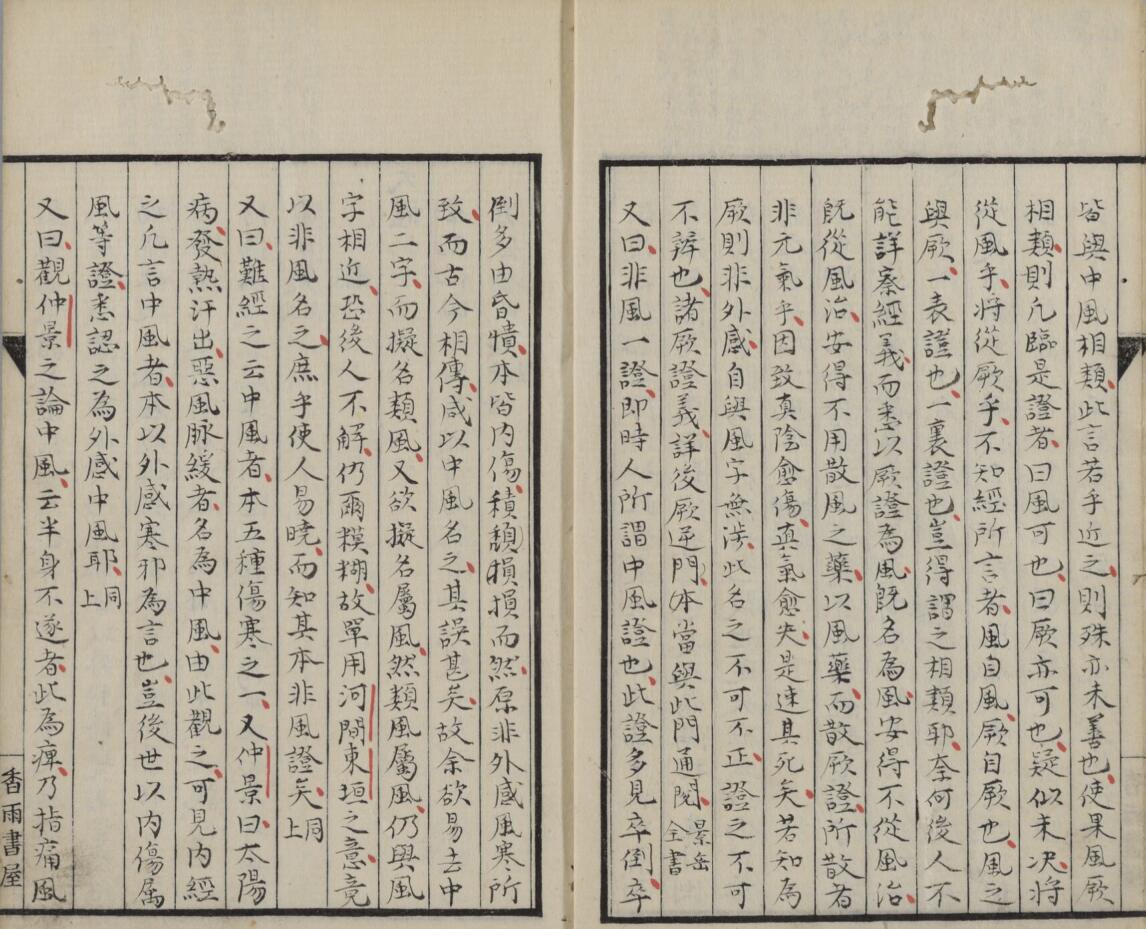 皆與中風相類此言若乎近之則殊亦未善也使果風厥
相類則凡臨是證者曰風可也曰厥亦可也疑似未决將
從風乎將從厥乎不知經所言者風自風厥自厥也風之
與厥一表證也一裏證也豈得謂之相類耶奈何後人不
能詳察經義而悉以厥證為風既名為風安得不從風治
既從風治安得不用散風之藥以風藥而散厥證所散者
非元氣乎因致真陰愈傷真氣愈失是速其死矣若知為
厥則非外感自與風字無涉此名之不可不正證之不可
不辨也諸厥證義詳後厥逆門本當與此門通閱景岳全書
又曰非風一證即時人所謂中風證也此證多見卒倒卒
倒多由昏憒本皆内傷積頽損損而然原非外感風寒所
致而古今相傳咸以中風名之其誤甚矣故余欲易去中
風二字而擬名類風又欲擬名屬風然類風屬風仍與風
字相近恐後人不解仍爾模糊故單用河間東垣之意竟
以非風名之庶乎使人易曉而知其本非風證矣同上
又曰難經之云中風者本五種傷寒之一又仲景曰太陽
病發熱汗出惡風脉緩者名為中風由此觀之可見内經
之凡言中風者本以外感寒邪為言也豈後世以内傷属
風等證悉認之為外感中風耶同上
又曰觀仲景之論中風云半身不遂者此為痺乃指痛風
香雨書屋